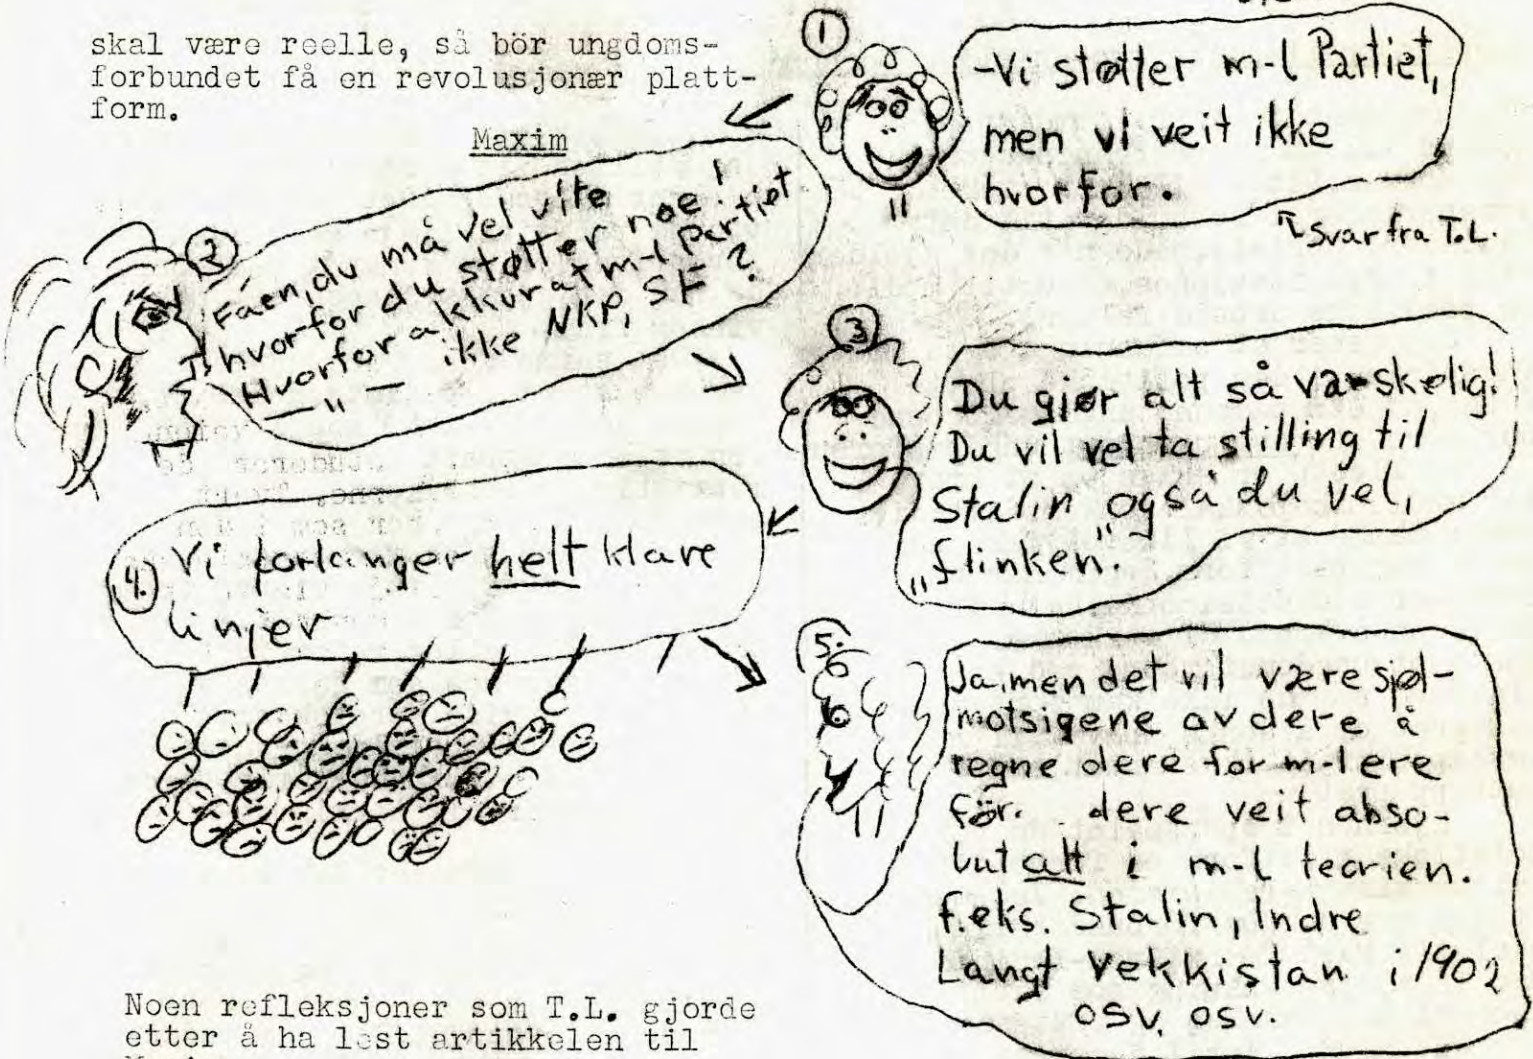 skal være reelle, så bör ungdoms-
forbundet få en revolusjonær platt-
form.
Maxim
1
-Vi støtter m-l Partiet,
men vi veit ikke
hvorfor.
Svar fra T.L.
2
Faen, du må vel vite
hvorfor du støtter noe!
Hvorfor akkurat m-l Partiet
— " — ikke NKP, SF ?
3
Du gjør alt så vanskelig!
Du vil vel ta stilling til
Stalin også du vel,
"flinken".
4.
Vi forlanger helt klare
linjer
5.
Ja, men det vil være sjøl-
motsigene av dere å
regne dere for m-lere
för dere veit abso-
lut alt i m-l teorien.
f.eks. Stalin, Indre
Langt Vekkistan i 1902
osv, osv.
Noen refleksjoner som T.L. gjorde
etter å ha lest artikkelen til